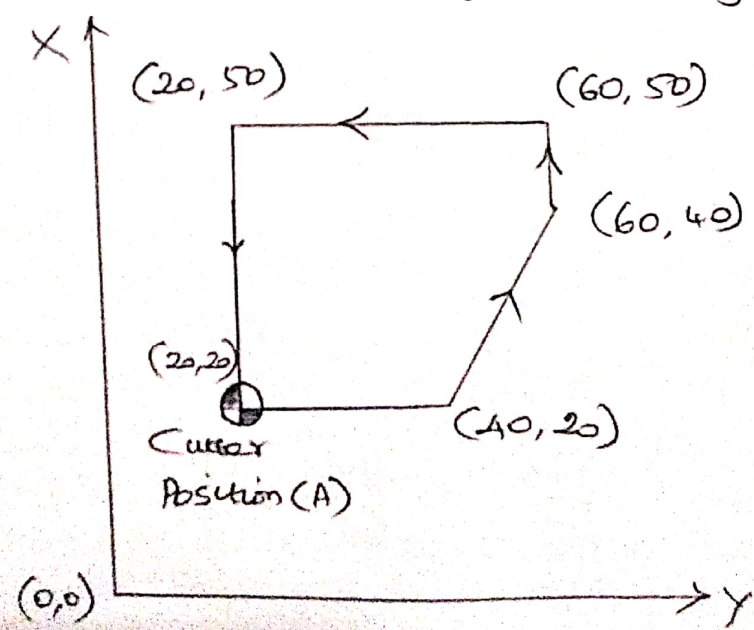 X
(20, 50)
(60, 50)
(60, 40)
(20,20)
(40, 20)
Cutter
Position (A)
(0,0)
Y